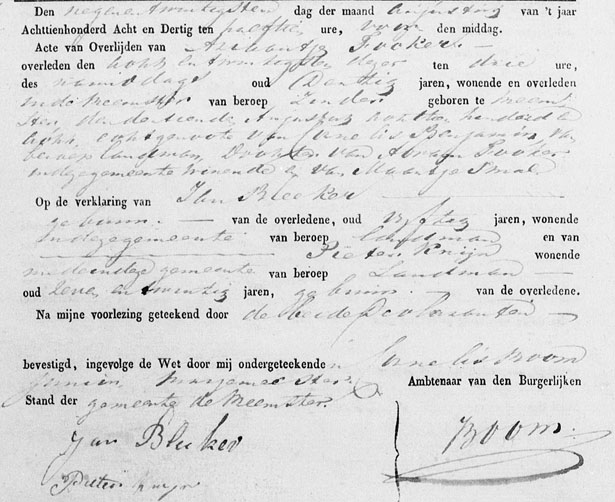 Den negenentwintigsten dag der maand Augustus van 't jaar
Achttienhonderd Acht en Dertig ten ure, voor den middag.
Acte van Overlijden van Pooker
overleden den acht en twintigsten dezer ten drie ure,
des namiddags oud Dertig jaren, wonende en overleden
in de Beemster van beroep Zonder geboren te Beem
ster, den Augustus achttien honderd
acht, echtgenote van Cornelis Benjamin, van
beroep landman, Dochter van Abram Pooker
in deze gemeente wonende en van Maartje Smal
Op de verklaring van Jan Bleeker
gebuur van de overledene, oud vyftig jaren, wonende
in deze gemeente van beroep landman en van
Pieter Knijn wonende
mede in deze gemeente van beroep Landman
oud zeven en twintig jaren, gebuur van de overledene.
Na mijne voorlezing geteekend door de beide Declaranten
bevestigd, ingevolge de Wet door mij ondergeteekende Cornelis Boom
Junior, Ambtenaar van den Burgerlijken
Stand der gemeente de Beemster.
Jan Bleeker
Boom
Pieter Knijn